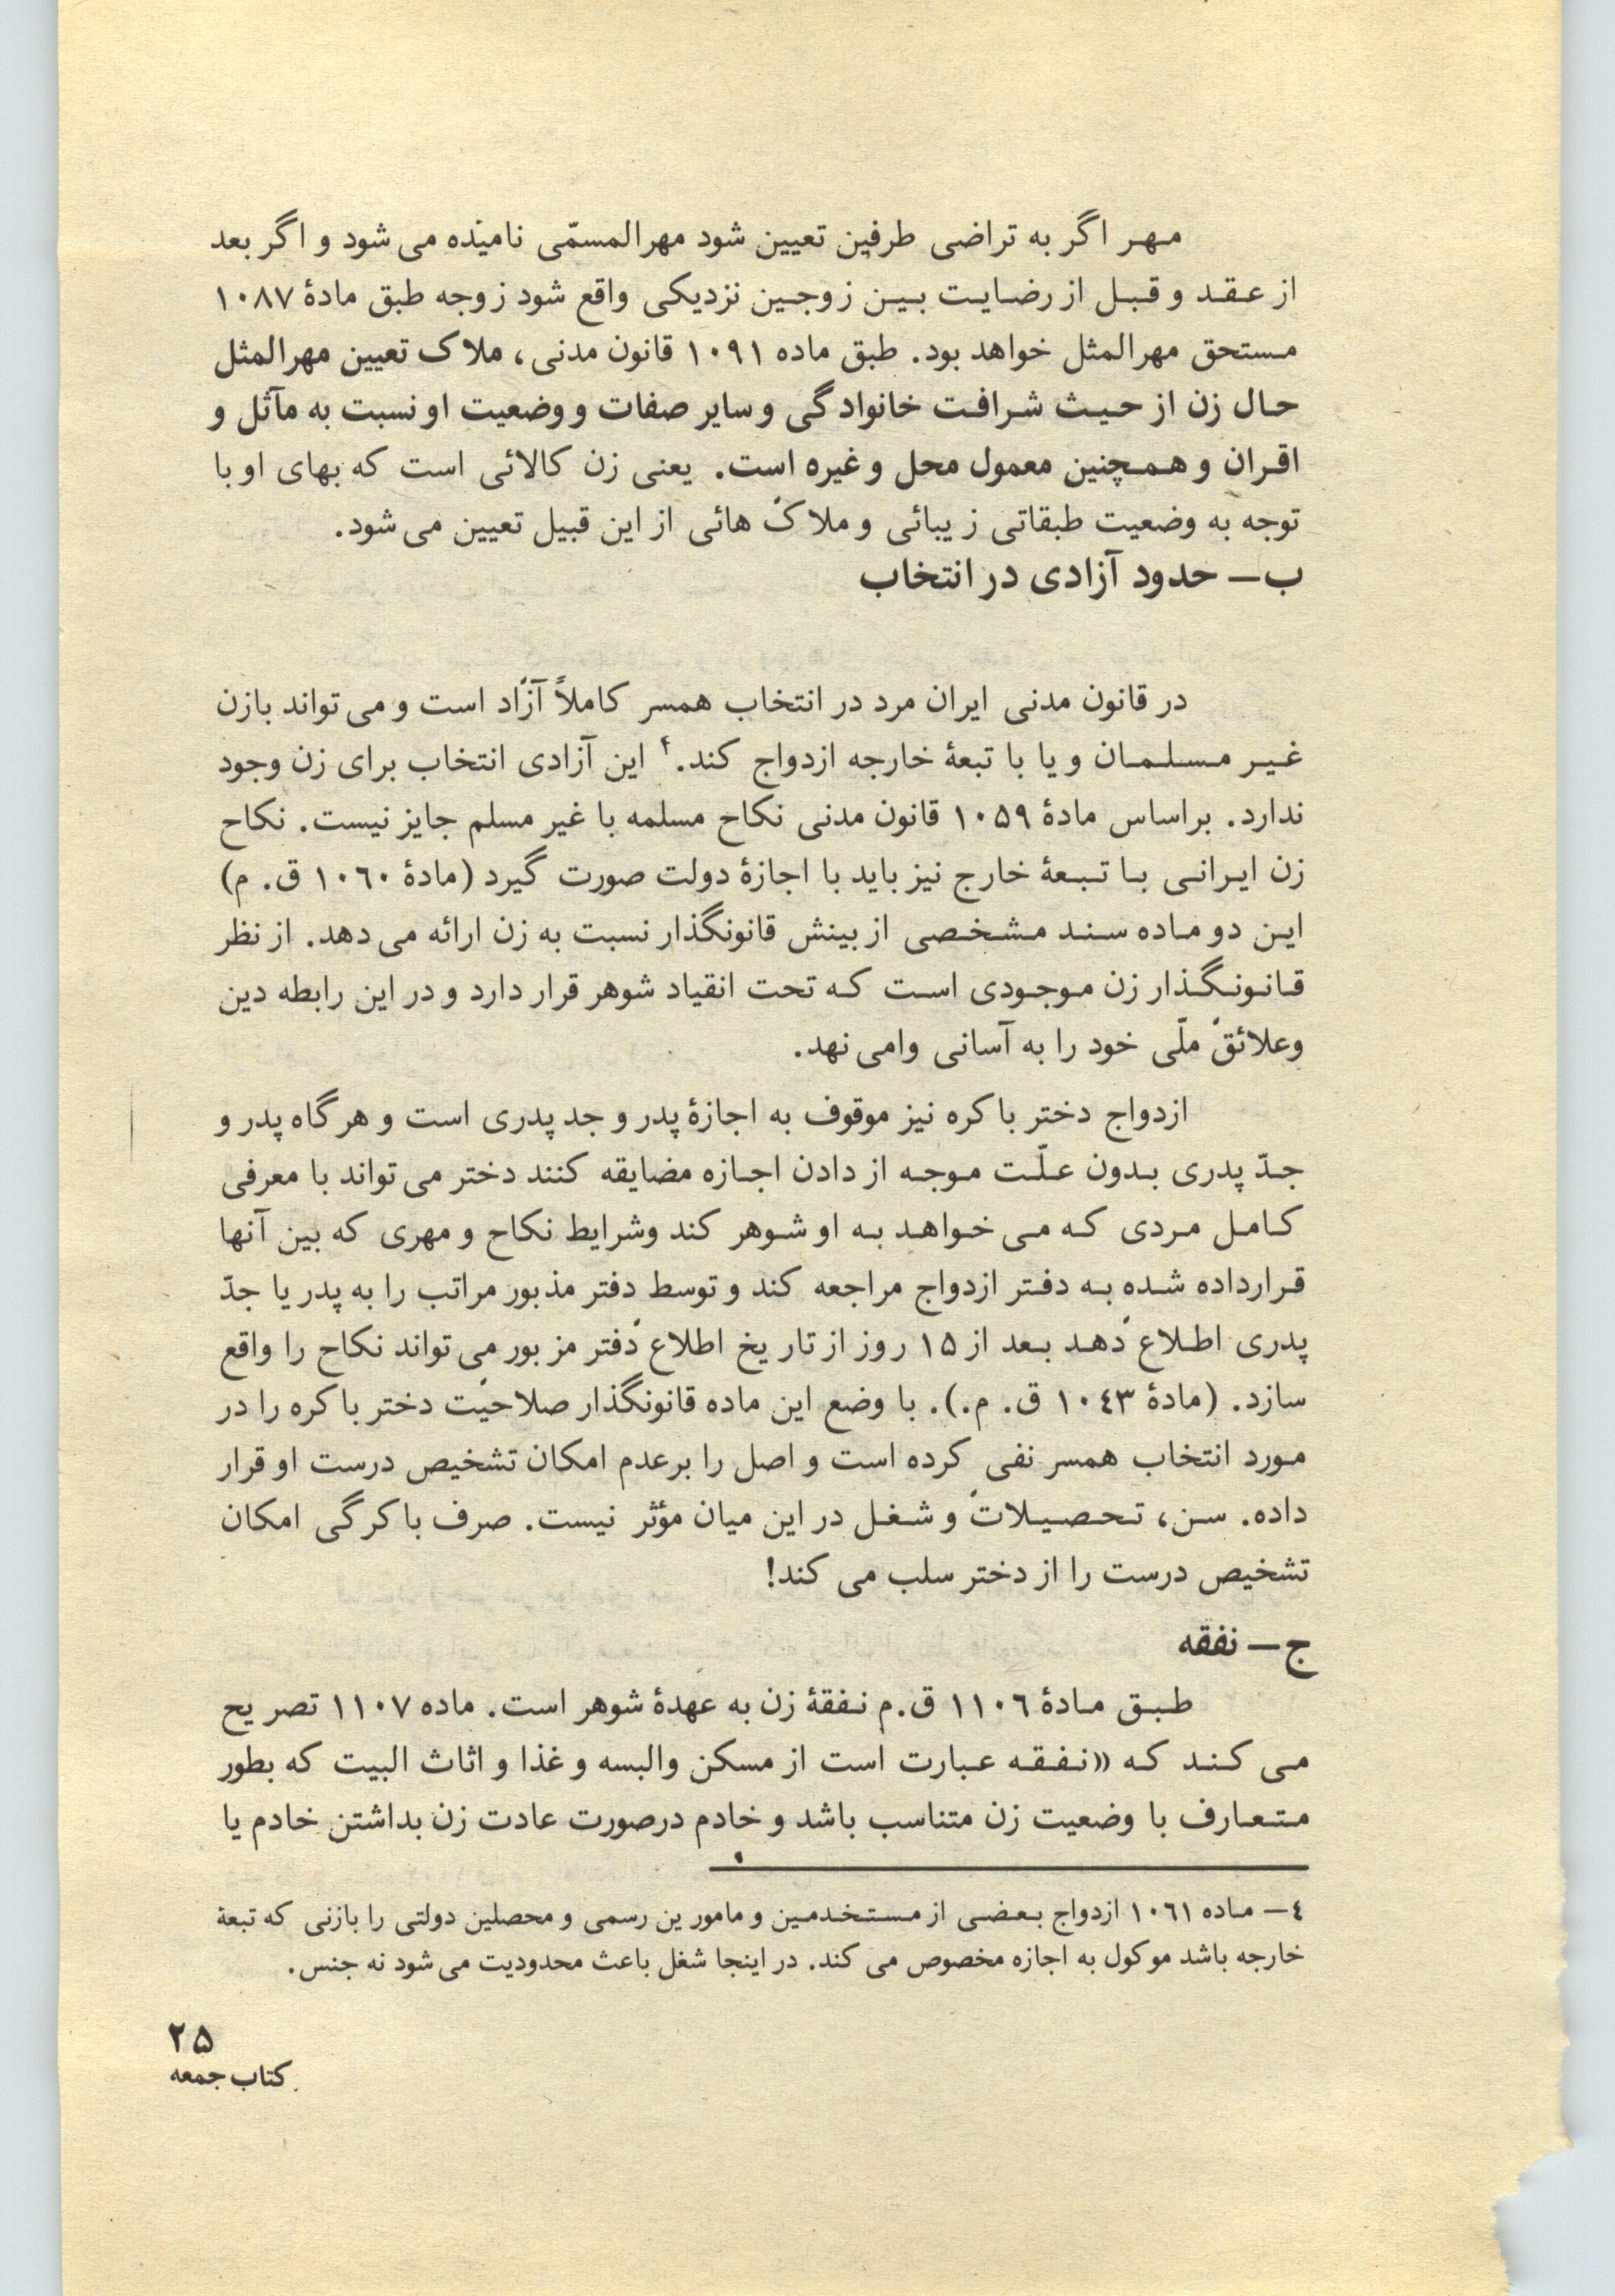 مهر اگر به تراضی طرفین تعیین شود مهرالمسمّی نامیده می‌شود و اگر بعد
از عقد و قبل از رضایت بین زوجین نزدیکی واقع شود زوجه طبق مادهٔ ۱۰۸۷
مستحق مهرالمثل خواهد بود. طبق ماده ۱۰۹۱ قانون مدنی، ملاک تعیین مهرالمثل
حال زن از حیث شرافت خانوادگی و سایر صفات و وضعیت او نسبت به مآثل و
اقران و همچنین معمول محل و غیره است. یعنی زن کالائی است که بهای او با
توجه به وضعیت طبقاتی زیبائی و ملاک هائی از این قبیل تعیین می‌شود.
ب — حدود آزادی در انتخاب
در قانون مدنی ایران مرد در انتخاب همسر کاملاً آزاد است و می‌تواند بازن
غیر مسلمان و یا با تبعهٔ خارجه ازدواج کند.۴ این آزادی انتخاب برای زن وجود
ندارد. براساس مادهٔ ۱۰۵۹ قانون مدنی نکاح مسلمه با غیر مسلم جایز نیست. نکاح
زن ایرانی با تبعهٔ خارج نیز باید با اجازهٔ دولت صورت گیرد (مادهٔ ۱۰۶۰ ق. م)
این دو ماده سند مشخصی از بینش قانونگذار نسبت به زن ارائه می‌دهد. از نظر
قانونگذار زن موجودی است که تحت انقیاد شوهر قرار دارد و در این رابطه دین
وعلائق ملّی خود را به آسانی وامی‌نهد.
ازدواج دختر باکره نیز موقوف به اجازهٔ پدر و جد پدری است و هرگاه پدر و
جدّ پدری بدون علّت موجه از دادن اجازه مضایقه کنند دختر می‌تواند با معرفی
کامل مردی که می‌خواهد به او شوهر کند وشرایط نکاح و مهری که بین آنها
قرارداده شده به دفتر ازدواج مراجعه کند و توسط دفتر مذبور مراتب را به پدر یا جدّ
پدری اطلاع دهد بعد از ۱۵ روز از تاریخ اطلاع دفتر مزبور می‌تواند نکاح را واقع
سازد. (مادهٔ ۱۰۴۳ ق. م.). با وضع این ماده قانونگذار صلاحیت دختر باکره را در
مورد انتخاب همسر نفی کرده است و اصل را برعدم امکان تشخیص درست او قرار
داده. سن، تحصیلات و شغل در این میان مؤثر نیست. صرف باکرگی امکان
تشخیص درست را از دختر سلب می‌کند!
ج — نفقه
طبق مادهٔ ۱۱۰۶ ق.م نفقهٔ زن به عهدهٔ شوهر است. ماده ۱۱۰۷ تصریح
می‌کند که «نفقه عبارت است از مسکن والبسه و غذا و اثاث البیت که بطور
متعارف با وضعیت زن متناسب باشد و خادم درصورت عادت زن بداشتن خادم یا
۴ — ماده ۱۰۶۱ ازدواج بعضی از مستخدمین و مامورین رسمی و محصلین دولتی را بازنی که تبعهٔ
خارجه باشد موکول به اجازه مخصوص می‌کند. در اینجا شغل باعث محدودیت می‌شود نه جنس.
۲۵
کتاب جمعه